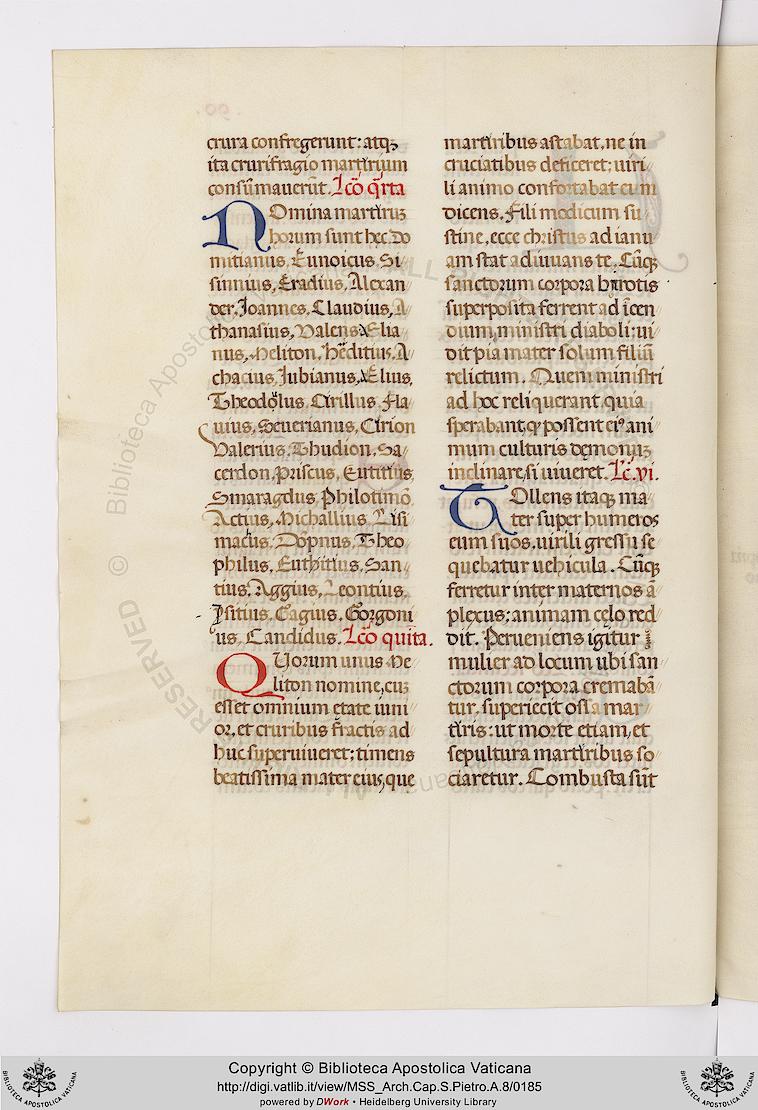 crura confregerunt: atqꝫ
ita crurifragio martirium
consūmauerūt. Lcō q̄rta
Nomina martirūꝫ
horum sunt hec. Do
mitianus, Eunoicus, Si
sinnius, Eradius, Alexan
der, Joannes, Claudius, A
thanasius, Valens, Elia
nus, Meliton, hēditius, A
chacius, Iubianus, Elius,
Theodolus, Cirillus, Fla
uius, Seuerianus, Cirion
Valerius, Thudion, Sa
cerdon, Priscus, Eutitius,
Smaragdus Philotimō
Actius, Michallius, Lisi
macus, Domnus, Theo
philus, Euthitius, San
tius, Aggius, Leontius,
Isitius, Gagius, Gorgoni
us, Candidus. Lcō quīta.
Quorum unus Me
liton nomine, cuꝫ
esset omnium etate iuni
or, et cruribus fractis ad
huc superuiueret; timens
beatissima mater eius, que
martiribus astabat, ne in
cruciatibus deficeret; uiri
li animo confortabat eum
dicens, Fili modicum su
stine, ecce christus ad ianu
am stat adiuuans te. Cūqꝫ
sanctorum corpora birotis
superposita ferrent ad īcen
dium, ministri diaboli; ui
dit pia mater solum filiū
relictum. Quem ministri
ad hoc reliquerant, quia
sperabant, ꝙ possent eiꝰ ani
mum culturis demoniꝫ
inclinare, si uiueret. Lc̄. vi.
Tollens itaqꝫ ma
ter super humeros
eum suos, uirili gressu se
quebatur uehicula. Cūqꝫ
ferretur inter maternos ā
plexus; animam cęlo red
dit. Perueniens igitur
mulier ad locum ubi san
ctorum corpora cremabā
tur, superiecit ossa mar
tiris: ut morte etiam, et
sepultura martiribus so
ciaretur. Combusta sūt
© Biblioteca Apostolica Vaticana ALL RIGHTS RESERVED
Copyright © Biblioteca Apostolica Vaticana
http://digi.vatlib.it/view/MSS_Arch.Cap.S.Pietro.A.8/0185
powered by DWork • Heidelberg University Library
BIBLIOTECA APOSTOLICA VATICANA
BIBLIOTECA APOSTOLICA VATICANA